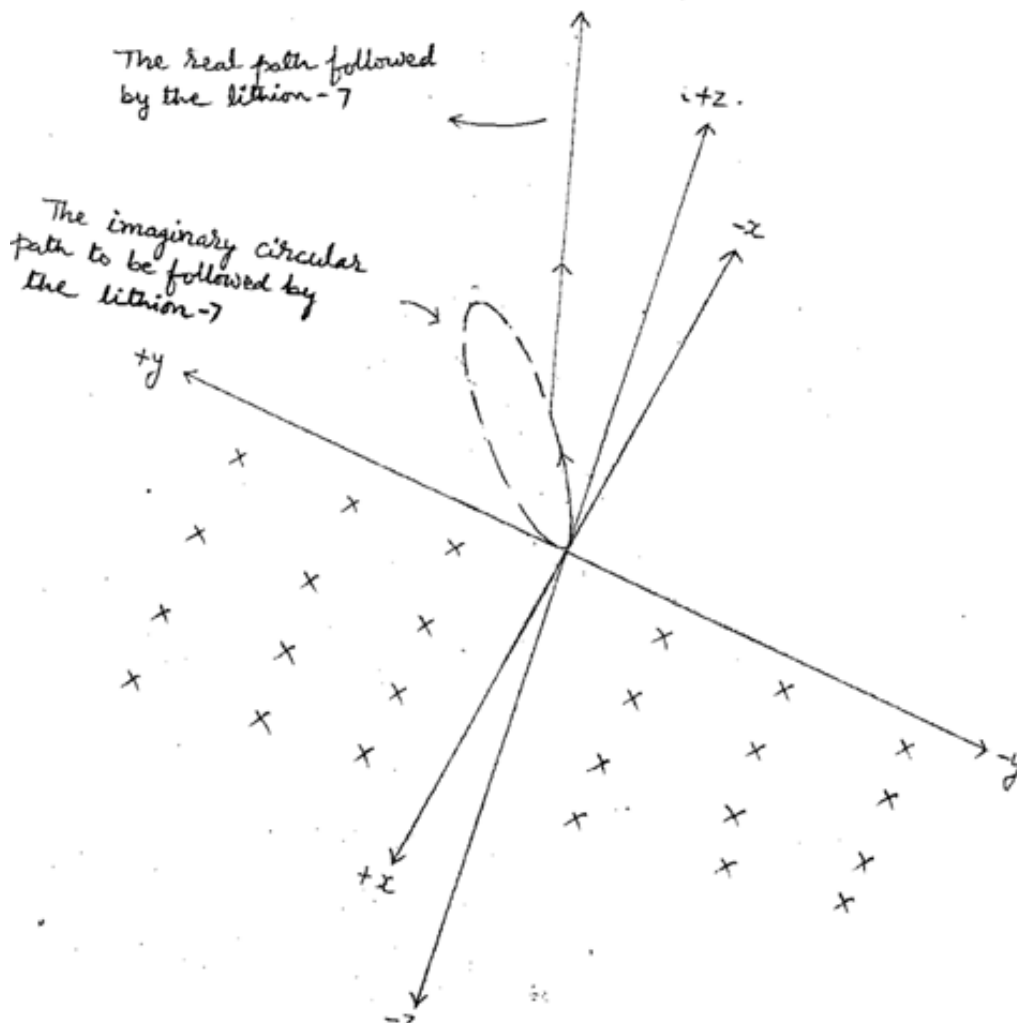 The real path followed
by the lithion-7
+z
-x
The imaginary circular
path to be followed by
the lithion-7
+y
-y
+x
-z